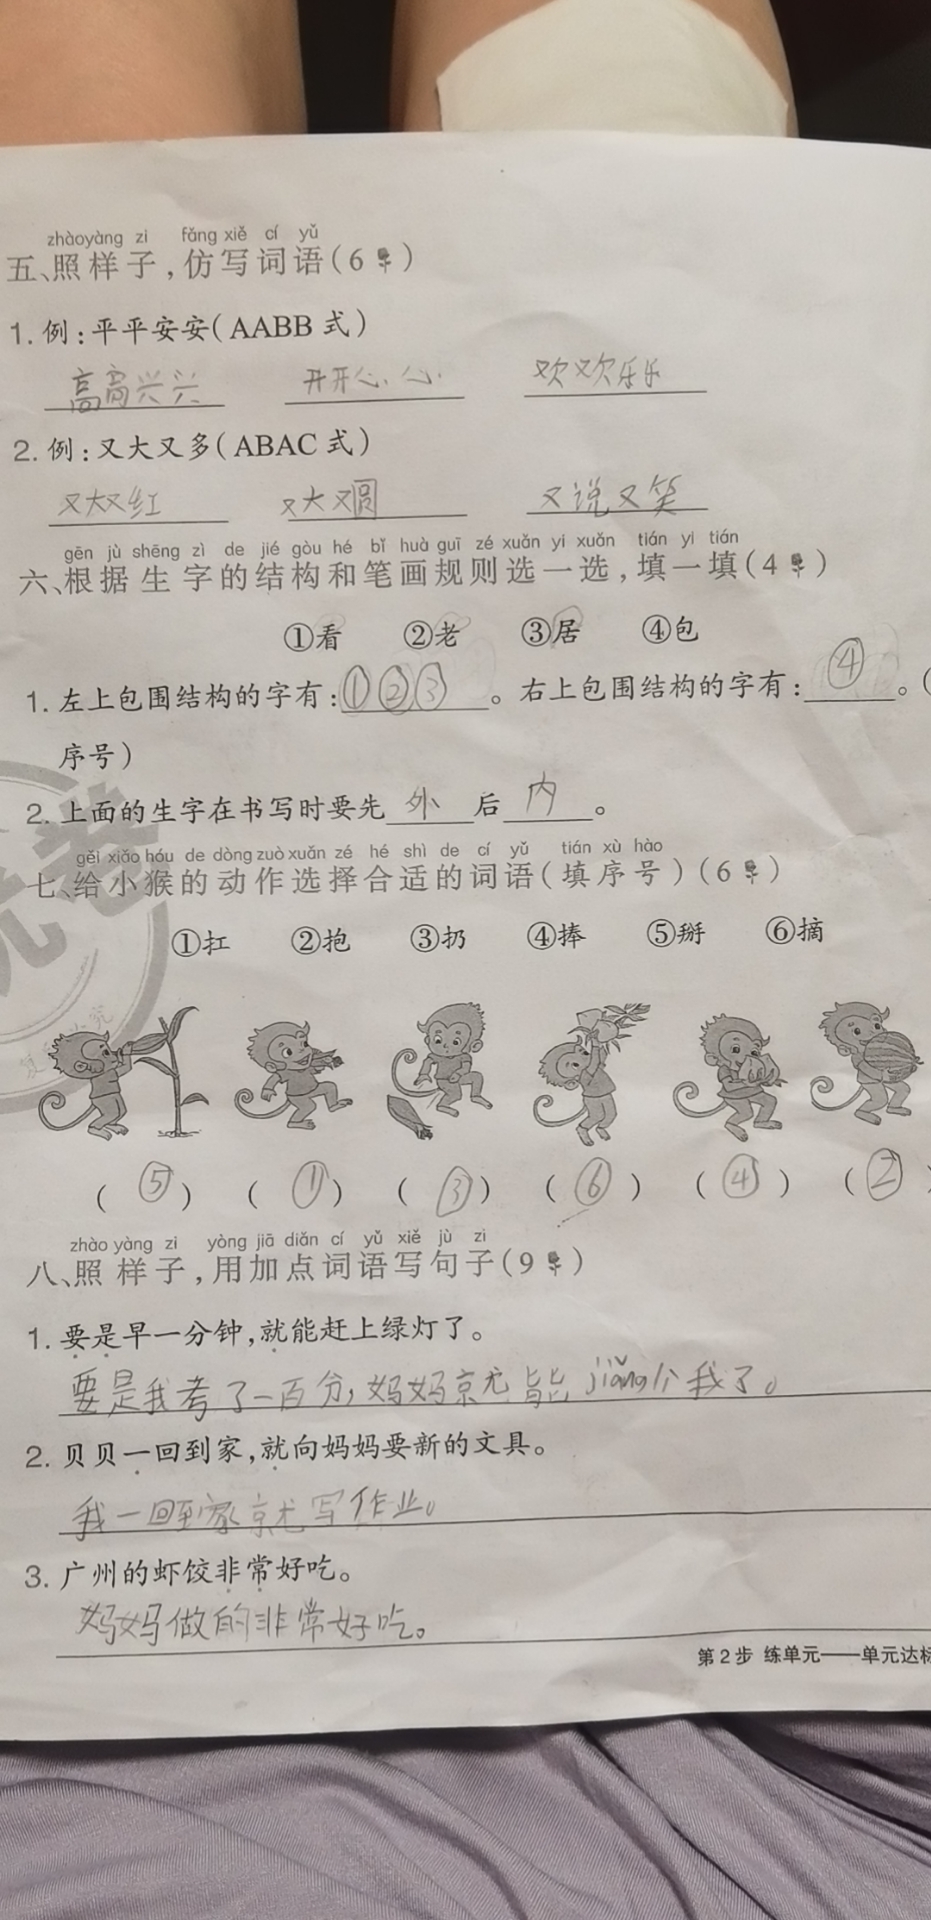 zhàoyàng zi fǎng xiě cí yǔ
五、照样子，仿写词语（6）
1. 例：平平安安（AABB 式）
高高兴兴 开开心心 欢欢乐乐
2. 例：又大又多（ABAC 式）
又大又红 又大又圆 又说又笑
gēn jù shēng zì de jié gòu hé bǐ huà guī zé xuǎn yi xuǎn tián yi tián
六、根据生字的结构和笔画规则选一选，填一填（4）
①看 ②老 ③居 ④包
1. 左上包围结构的字有：①②③。右上包围结构的字有：④。（
序号）
2. 上面的生字在书写时要先外后内。
gěi xiǎo hóu de dòng zuò xuǎn zé hé shì de cí yǔ tián xù hào
七、给小猴的动作选择合适的词语（填序号）（6）
①扛 ②抱 ③扔 ④捧 ⑤掰 ⑥摘
（⑤）（①）（③）（⑥）（④）（②）
zhào yàng zi yòng jiā diǎn cí yǔ xiě jù zi
八、照样子，用加点词语写句子（9）
1. 要是早一分钟，就能赶上绿灯了。
要是我考了一百分，妈妈就能jiǎng个我了。
2. 贝贝一回到家，就向妈妈要新的文具。
我一回到家就写作业。
3. 广州的虾饺非常好吃。
妈妈做的非常好吃。
第2步 练单元——单元达标